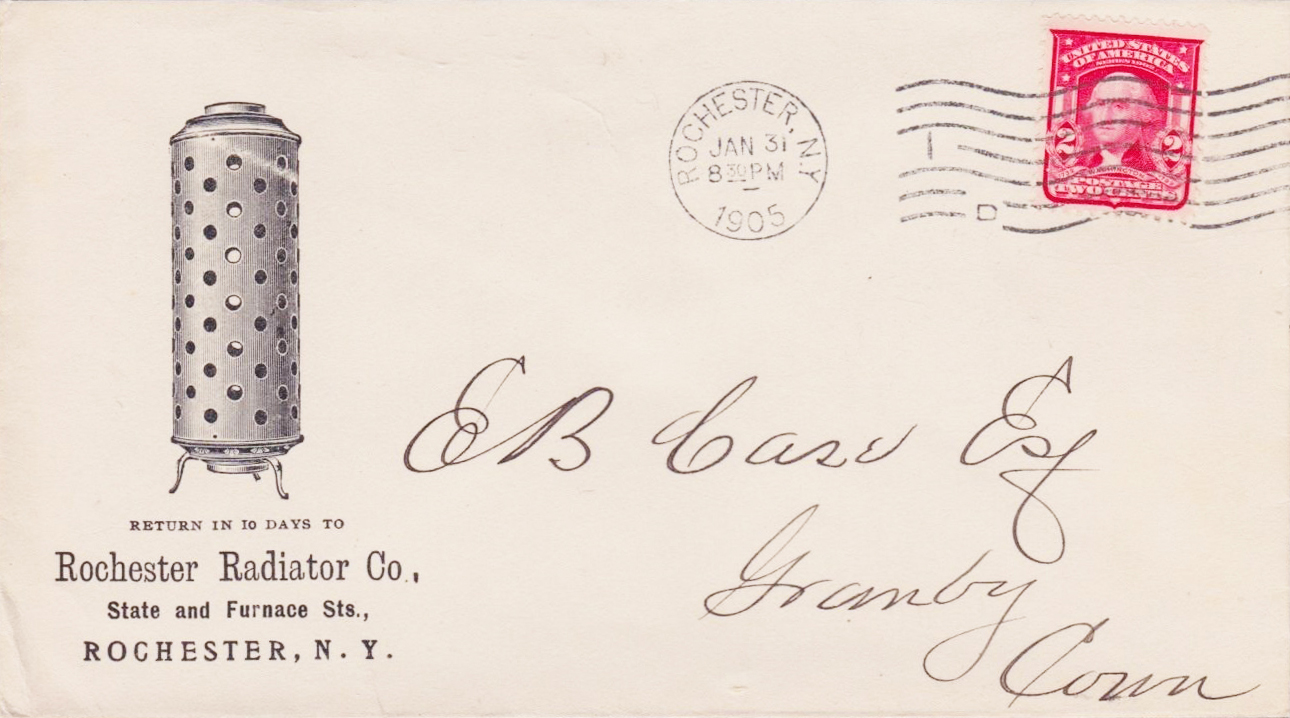 ROCHESTER, N.Y.
JAN 31
8 30 PM
1905
1
D
UNITED STATES
OF AMERICA
SERIES 1902
2 2
WASHINGTON
POSTAGE
TWO CENTS
E B Case Esq
Granby
Conn
RETURN IN 10 DAYS TO
Rochester Radiator Co.,
State and Furnace Sts.,
ROCHESTER, N. Y.